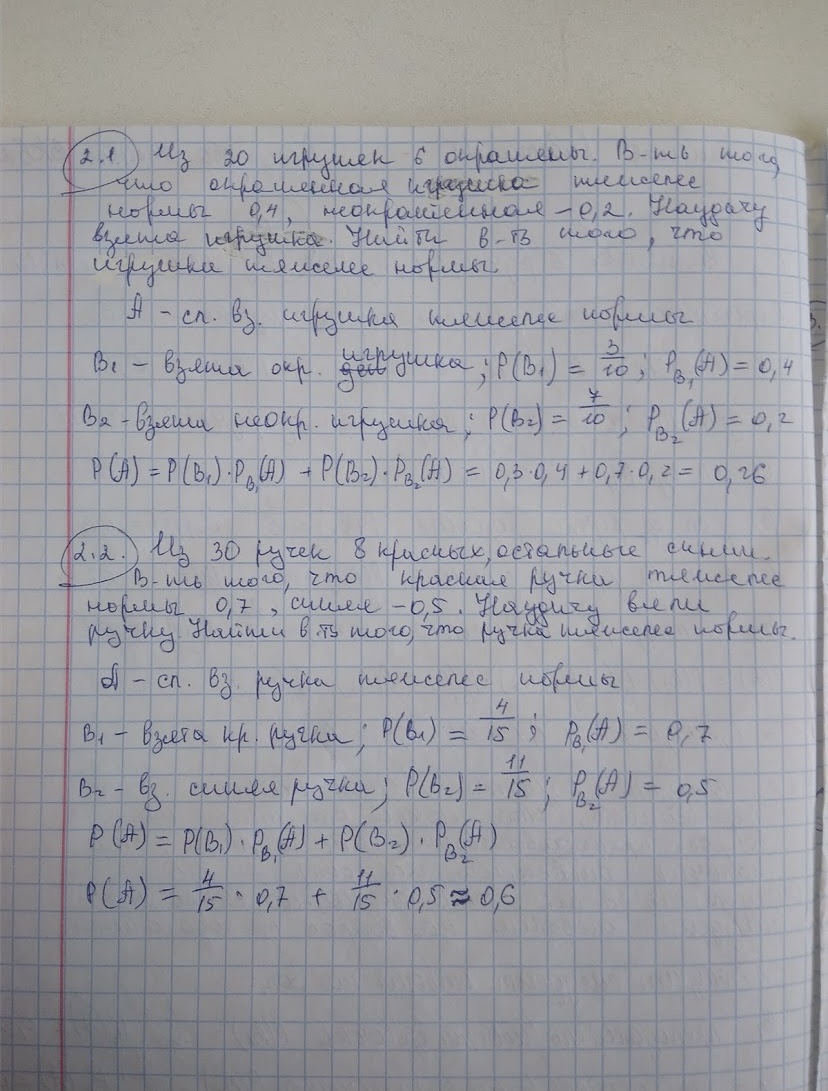 2.1 Из 20 игрушек 6 окрашены. В-ть того,
что окрашенная игрушка тяжелее
нормы 0,4, неокрашенная - 0,2. Наудачу
взята игрушка. Найти в-ть того, что
игрушка тяжелее нормы.
A - сл. вз. игрушка тяжелее нормы
B₁ - взята окр. игрушка; P(B₁) = 3/10; P_B₁(A) = 0,4
B₂ - взята неокр. игрушка; P(B₂) = 7/10; P_B₂(A) = 0,2
P(A) = P(B₁)·P_B₁(A) + P(B₂)·P_B₂(A) = 0,3·0,4 + 0,7·0,2 = 0,26
2.2. Из 30 ручек 8 красных, остальные синии.
В-ть того, что красная ручка тяжелее
нормы 0,7, синяя - 0,5. Наудачу взяли
ручку. Найти в-ть того, что ручка тяжелее нормы.
A - сл. вз. ручка тяжелее нормы
B₁ - взята кр. ручка; P(B₁) = 4/15; P_B₁(A) = 0,7
B₂ - вз. синяя ручка; P(B₂) = 11/15; P_B₂(A) = 0,5
P(A) = P(B₁)·P_B₁(A) + P(B₂)·P_B₂(A)
P(A) = 4/15 · 0,7 + 11/15 · 0,5 ≈ 0,6